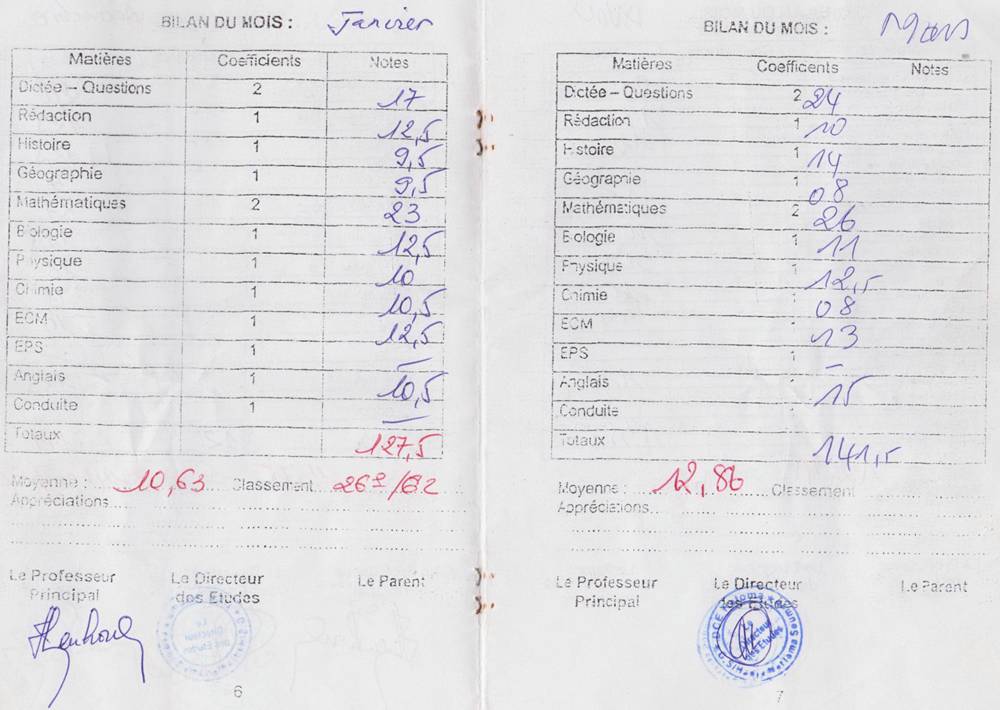 BILAN DU MOIS : Janvier
Matières Coefficients Notes
Dictée – Questions 2 17
Rédaction 1 12,5
Histoire 1 9,5
Géographie 1 9,5
Mathématiques 2 23
Biologie 1 12,5
Physique 1 10
Chimie 1 10,5
ECM 1 12,5
EPS 1 –
Anglais 1 10,5
Conduite 1 –
Totaux 127,5
Moyenne : 10,63 Classement 26e/62
Appréciations
Le Professeur Principal
Le Directeur des Etudes
Le Parent
Le Directeur des Etudes
6
BILAN DU MOIS : Mars
Matières Coefficents Notes
Dictée – Questions 2 24
Rédaction 1 10
Histoire 1 14
Géographie 1 08
Mathématiques 2 26
Biologie 1 11
Physique 1 12,5
Chimie 1 08
ECM 1 13
EPS 1 –
Anglais 1 15
Conduite
Totaux 141,5
Moyenne : 12,86 Classement
Appréciations
Le Professeur Principal
Le Directeur des Etudes
Le Parent
Le Directeur des Etudes
7